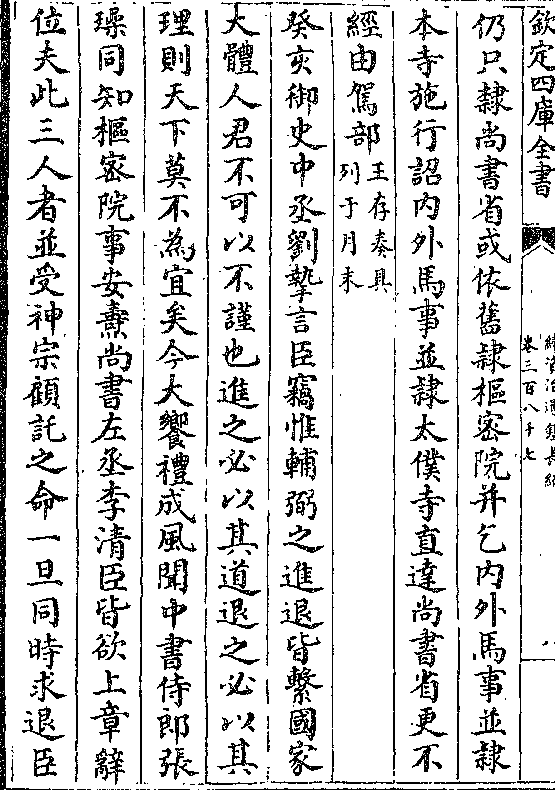 欽定四庫全書
續資治通鑑長編
卷三百八十七
八
仍只隸尚書省或依舊隸樞密院并乞内外馬事並隸
本寺施行詔内外馬事並隸太僕寺直達尚書省更不
經由駕部王存奏具
列于月末
癸亥御史中丞劉摯言臣竊惟輔弼之進退皆繫國家
大體人君不可以不謹也進之必以其道退之必以其
理則天下莫不為宜矣今大饗禮成風聞中書侍郎張
璪同知樞密院事安燾尚書左丞李清臣皆欲上章辭
位夫此三人者並受神宗顧託之命一旦同時求退臣